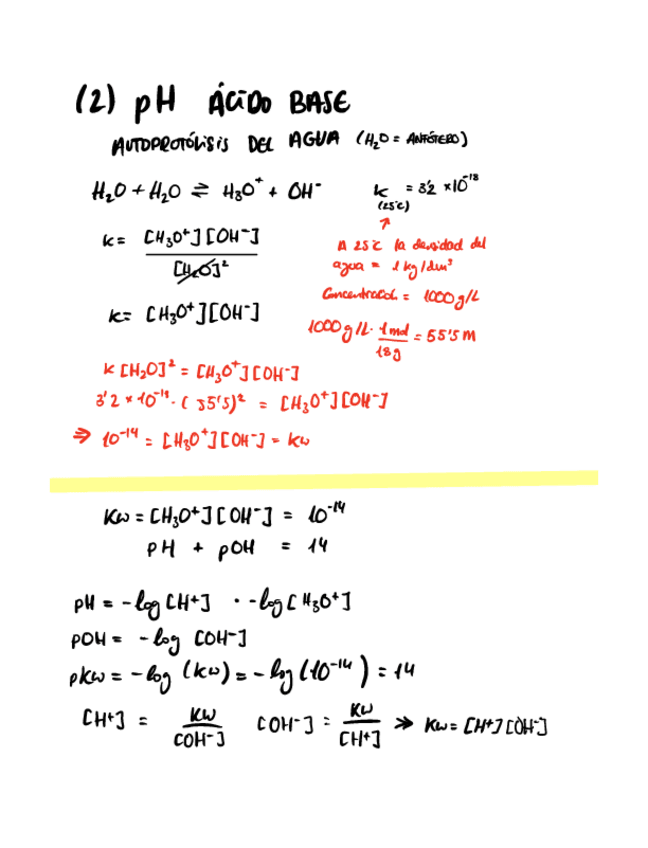 (2) pH ÁCIDO BASE
AUTOPROTÓLISIS DEL AGUA (H₂O = ANFÓTERO)
H₂O + H₂O ⇌ H₃O⁺ + OH⁻
K = 3'2 × 10⁻¹⁸
(25ºC)
K = [H₃O⁺][OH⁻] / [H₂O]²
K = [H₃O⁺][OH⁻]
A 25ºC la densidad del
agua = 1 kg/dm³
Concentración = 1000 g/L
1000 g/L · 1 mol / 18 g = 55'5 M
K [H₂O]² = [H₃O⁺][OH⁻]
3'2 × 10⁻¹⁸ · (55'5)² = [H₃O⁺][OH⁻]
⇒ 10⁻¹⁴ = [H₃O⁺][OH⁻] = Kw
Kw = [H₃O⁺][OH⁻] = 10⁻¹⁴
pH + pOH = 14
pH = -log [H⁺] · -log [H₃O⁺]
pOH = -log [OH⁻]
pKw = -log (Kw) = -log (10⁻¹⁴) = 14
[H⁺] = Kw / [OH⁻] [OH⁻] = Kw / [H⁺] ⇒ Kw = [H⁺][OH⁻]